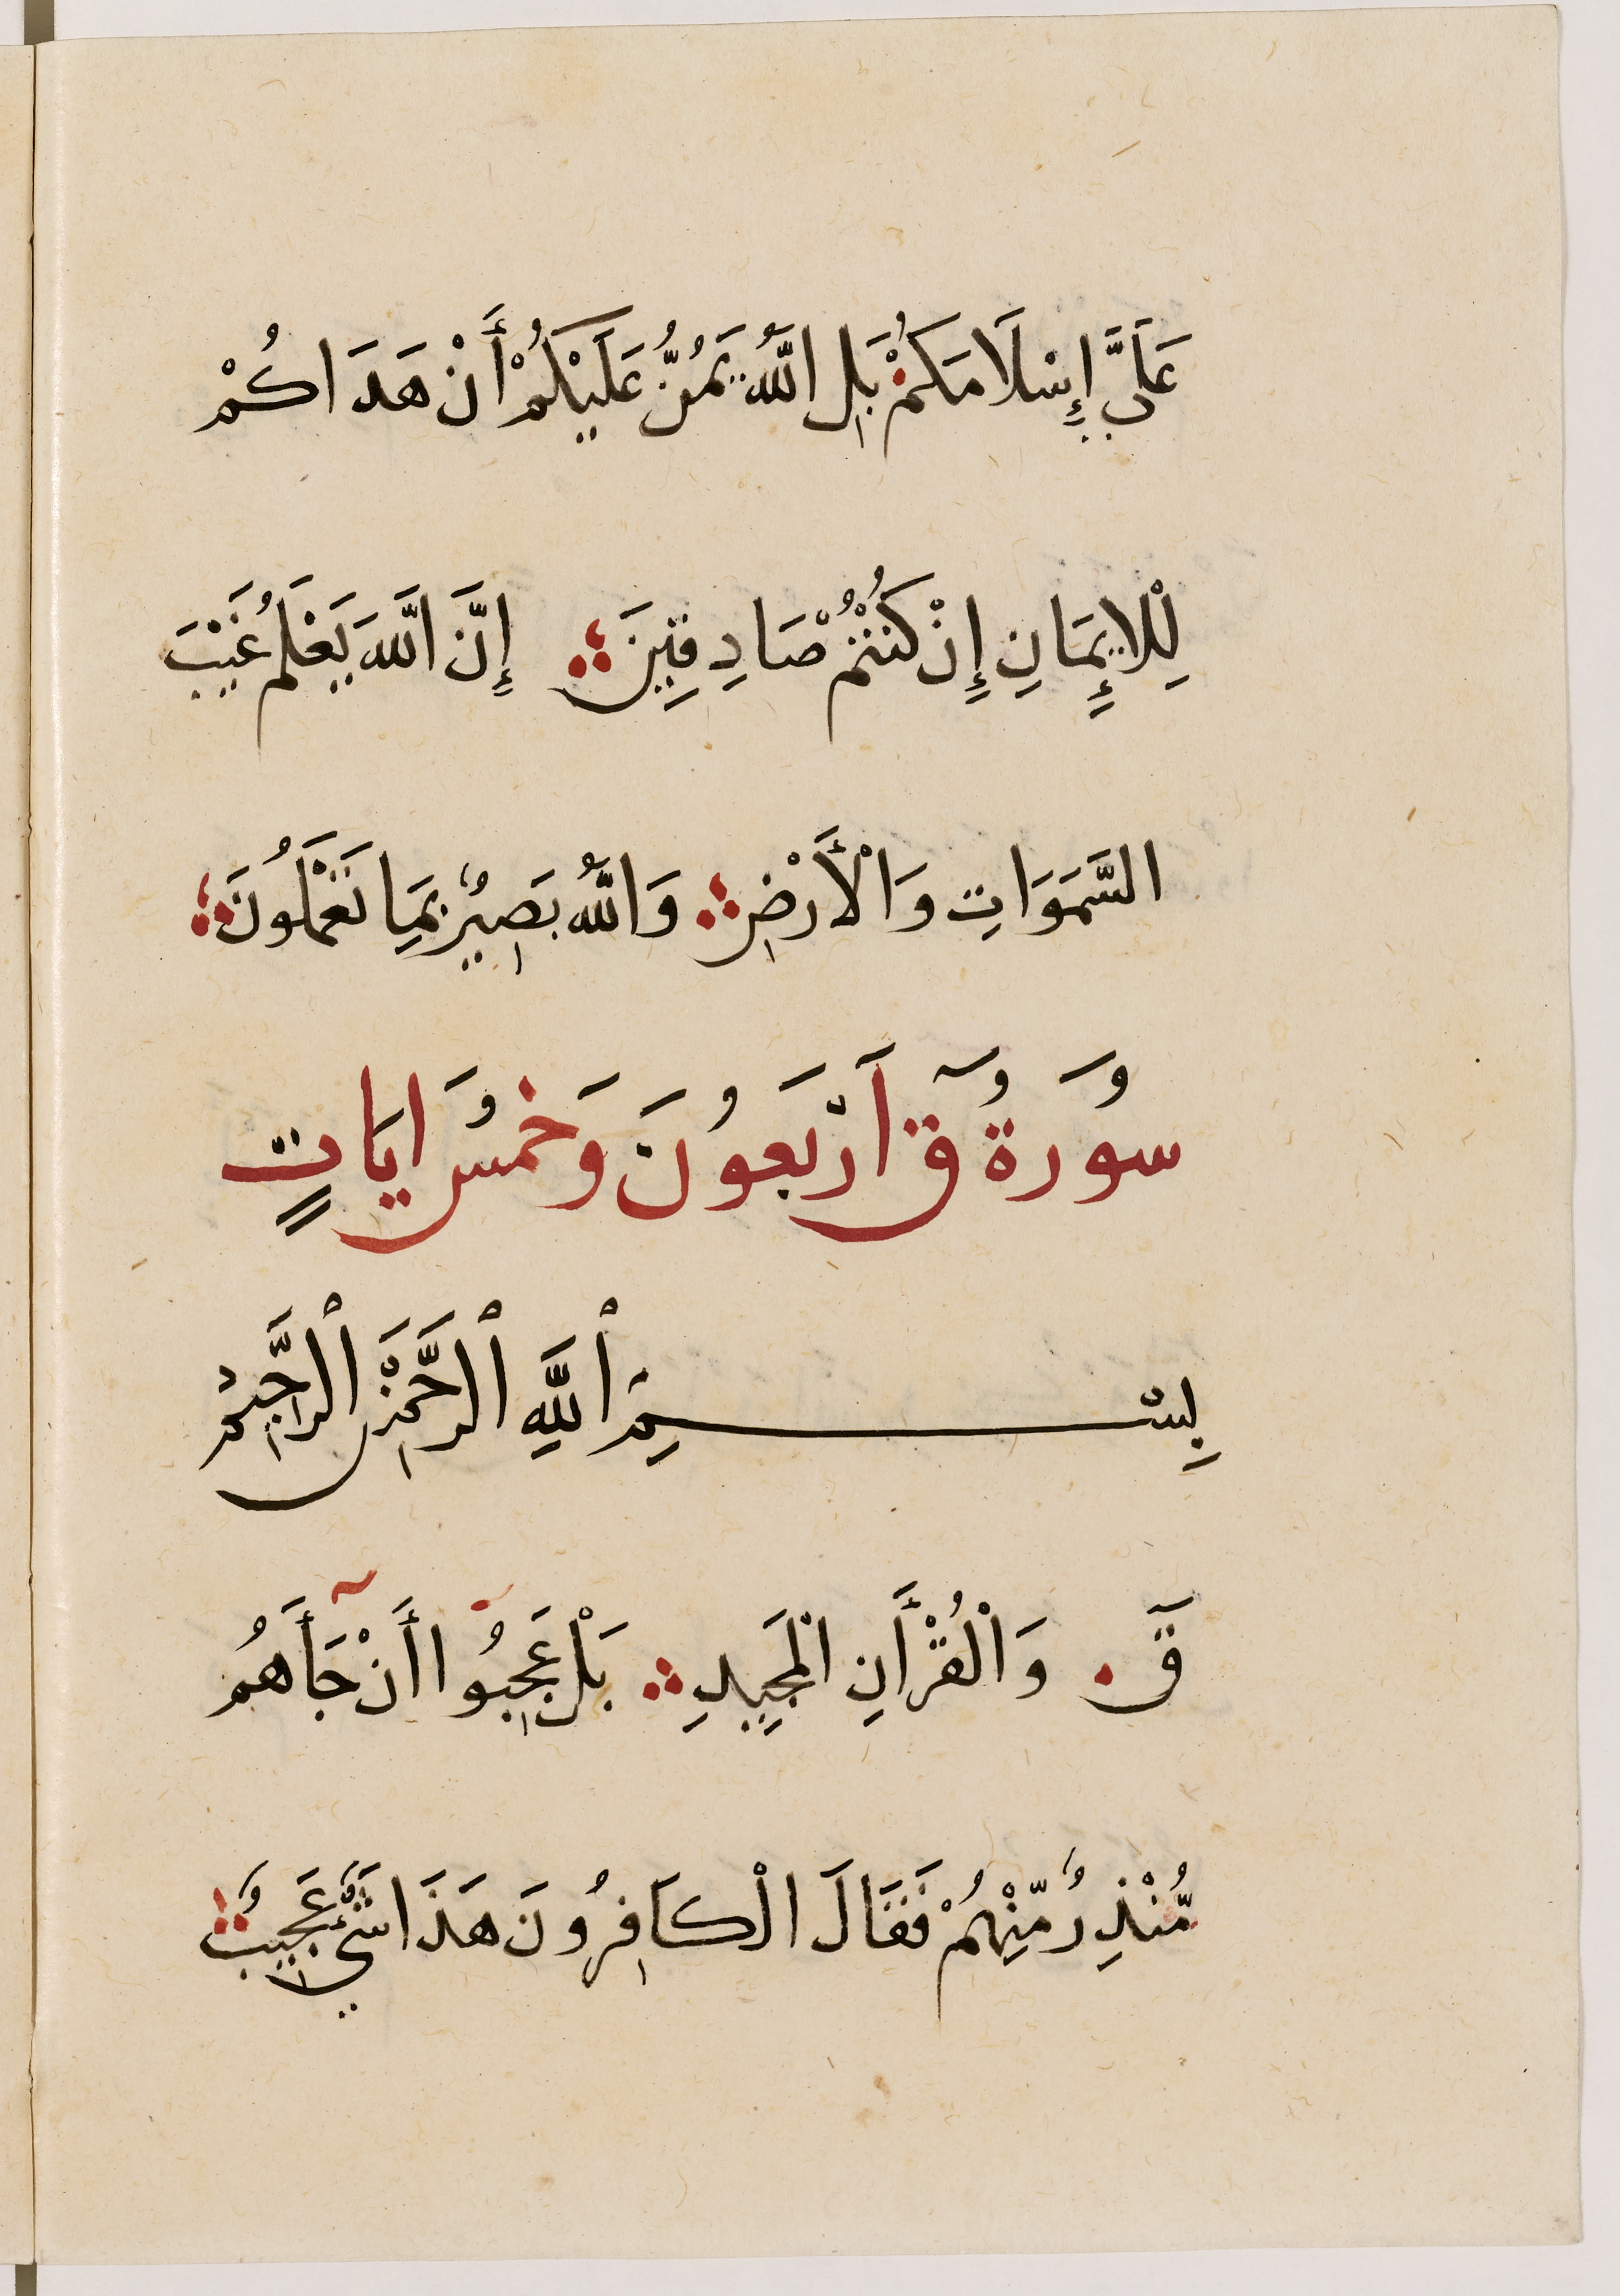 عَلَيَّ إِسْلَامَكُمْ بَلِ اللَّهُ يَمُنُّ عَلَيْكُمْ أَنْ هَدَاكُمْ
لِلْإِيمَانِ إِنْ كُنْتُمْ صَادِقِينَ إِنَّ اللَّهَ يَعْلَمُ غَيْبَ
السَّمَوَاتِ وَالْأَرْضِ وَاللَّهُ بَصِيرٌ بِمَا تَعْمَلُونَ
سُورَةُ قٓ أَرْبَعُونَ وَخَمْسُ ايَاتٍ
بِسْمِ ٱللَّهِ ٱلرَّحْمَنِ ٱلرَّحِيمِ
قٓ وَالْقُرْأَنِ الْمَجِيدِ بَلْ عَجِبُوا أَنْ جَأَهُمْ
مُّنْذِرٌ مِّنْهُمْ فَقَالَ الْكَافِرُونَ هَذَا شَيْءٌ عَجِيبٌ